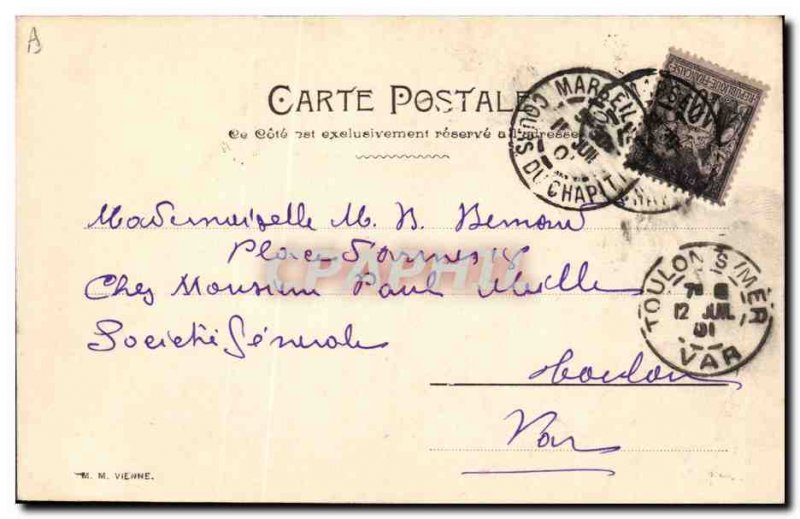 A
CARTE POSTALE
Ce Côté est exclusivement réservé à l'adresse
MARSEILLE
COURS DU CHAPITRE
JUIL
RÉPUBLIQUE FRANÇAISE
Mademoiselle M. B. Bernard
Place d'armes
CPAPHIL
Chez Monsieur Paul
Société Générale
TOULON S/MER
12 JUIL
01
VAR
Toulon
Var
M. M. VIENNE.